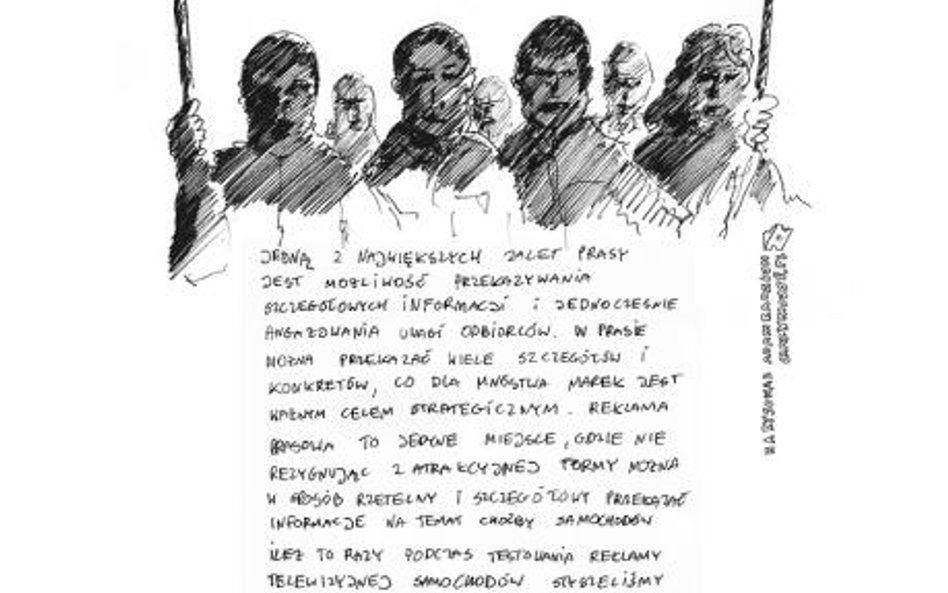 JEDNĄ Z NAJWIĘKSZYCH ZALET PRASY
JEST MOŻLIWOŚĆ PRZEKAZYWANIA
SZCZEGÓŁOWYCH INFORMACJI I JEDNOCZEŚNIE
ANGAŻOWANIA UWAGI ODBIORCÓW. W PRASIE
MOŻNA PRZEKAZAĆ WIELE SZCZEGÓŁÓW I
KONKRETÓW, CO DLA MNÓSTWA MAREK JEST
WAŻNYM CELEM STRATEGICZNYM. REKLAMA
PRASOWA TO JEDYNE MIEJSCE, GDZIE NIE
REZYGNUJĄC Z ATRAKCYJNEJ FORMY MOŻNA
W SPOSÓB RZETELNY I SZCZEGÓŁOWY PRZEKAZAĆ
INFORMACJE NA TEMAT CHOĆBY SAMOCHODÓW
ILEŻ TO RAZY PODCZAS TESTOWANIA REKLAMY
TELEWIZYJNEJ SAMOCHODÓW SŁYSZELIŚMY